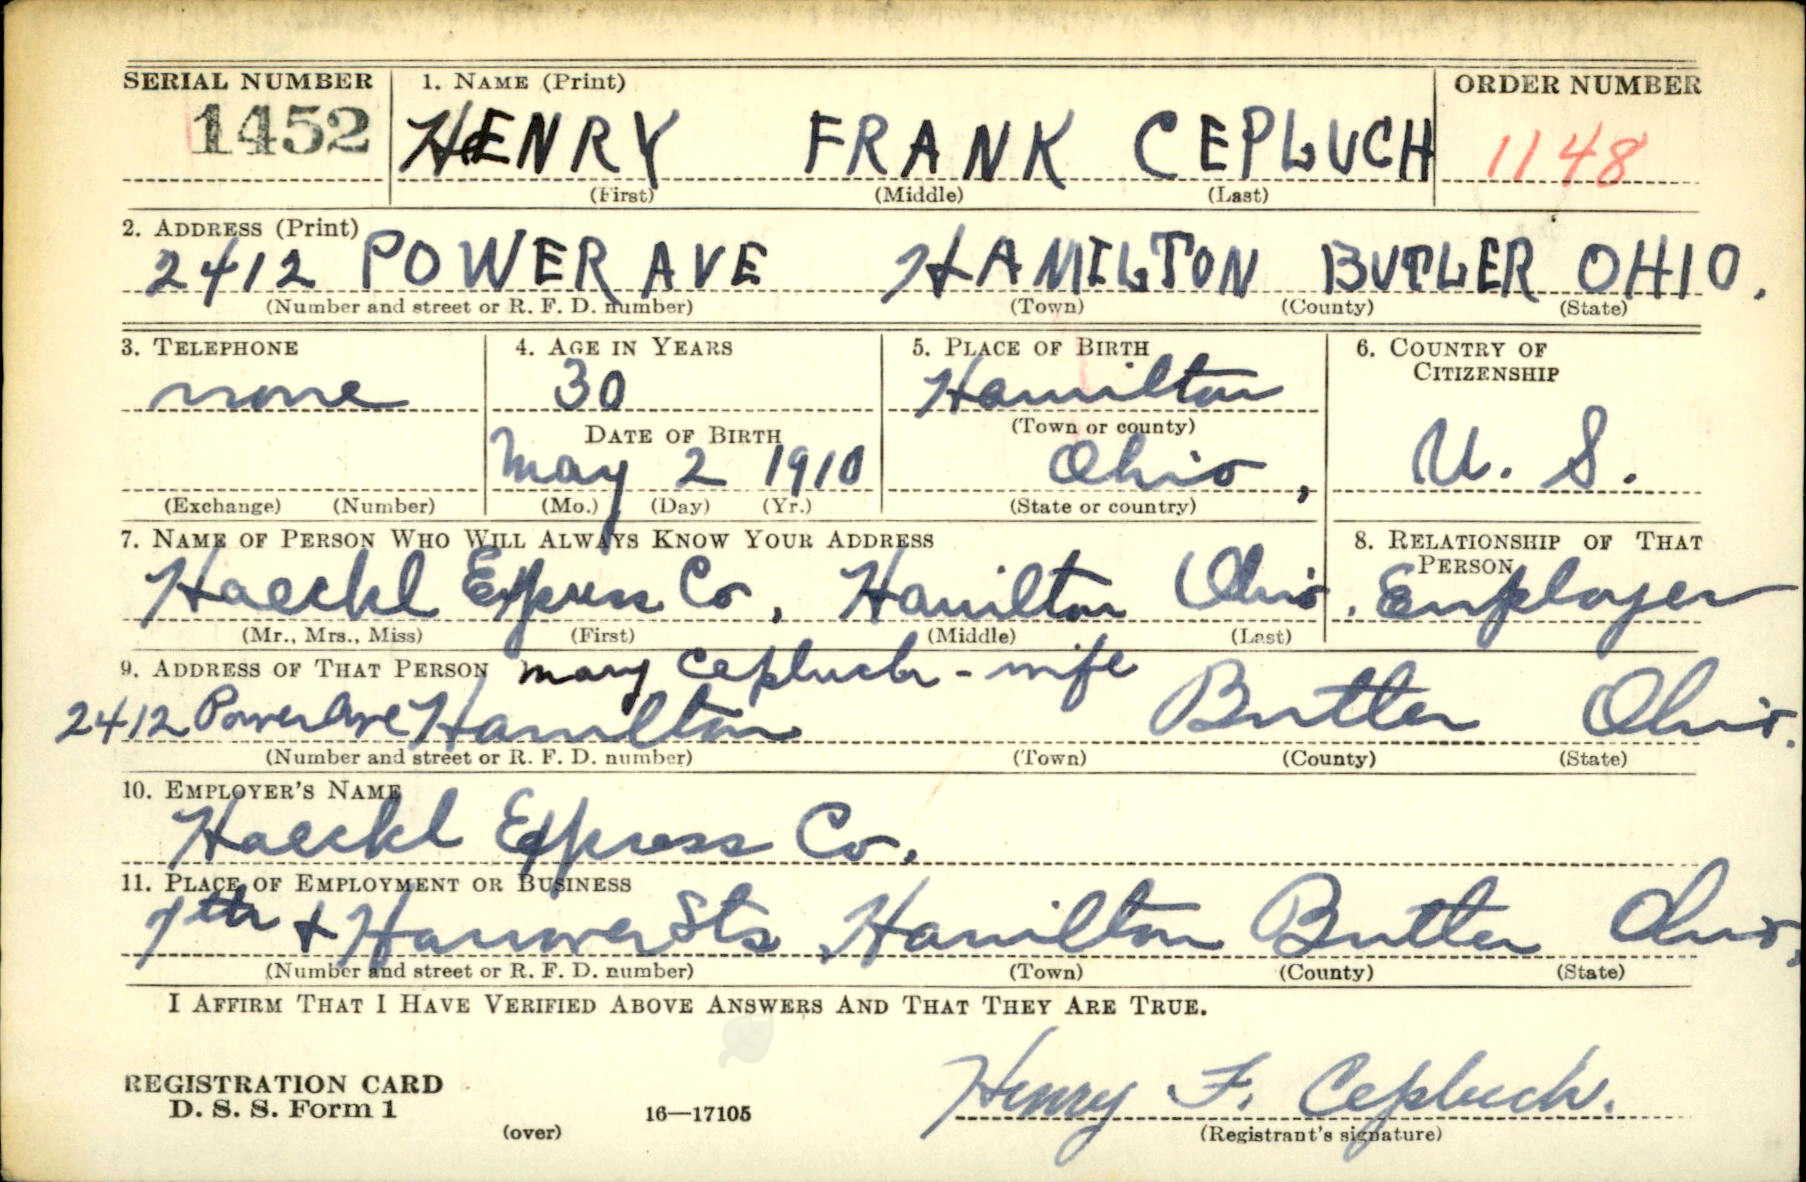 SERIAL NUMBER 1. NAME (Print) ORDER NUMBER
1452 HENRY FRANK CEPLUCH 1148
(First) (Middle) (Last)
2. ADDRESS (Print)
2412 POWER AVE HAMILTON BUTLER OHIO.
(Number and street or R. F. D. number) (Town) (County) (State)
3. TELEPHONE 4. AGE IN YEARS 5. PLACE OF BIRTH 6. COUNTRY OF CITIZENSHIP
none 30 Hamilton
(Town or county)
DATE OF BIRTH
May 2 1910 Ohio, U. S.
(Exchange) (Number) (Mo.) (Day) (Yr.) (State or country)
7. NAME OF PERSON WHO WILL ALWAYS KNOW YOUR ADDRESS 8. RELATIONSHIP OF THAT PERSON
Haeckl Express Co, Hamilton Ohio. Employer
(Mr., Mrs., Miss) (First) (Middle) (Last)
9. ADDRESS OF THAT PERSON Mary Cepluch - wife
2412 Power Ave Hamilton Butler Ohio.
(Number and street or R. F. D. number) (Town) (County) (State)
10. EMPLOYER'S NAME
Haeckl Express Co.
11. PLACE OF EMPLOYMENT OR BUSINESS
7th + Hanover Sts, Hamilton Butler Ohio,
(Number and street or R. F. D. number) (Town) (County) (State)
I AFFIRM THAT I HAVE VERIFIED ABOVE ANSWERS AND THAT THEY ARE TRUE.
REGISTRATION CARD
D. S. S. Form 1 16—17105 Henry F. Cepluch.
(over) (Registrant's signature)